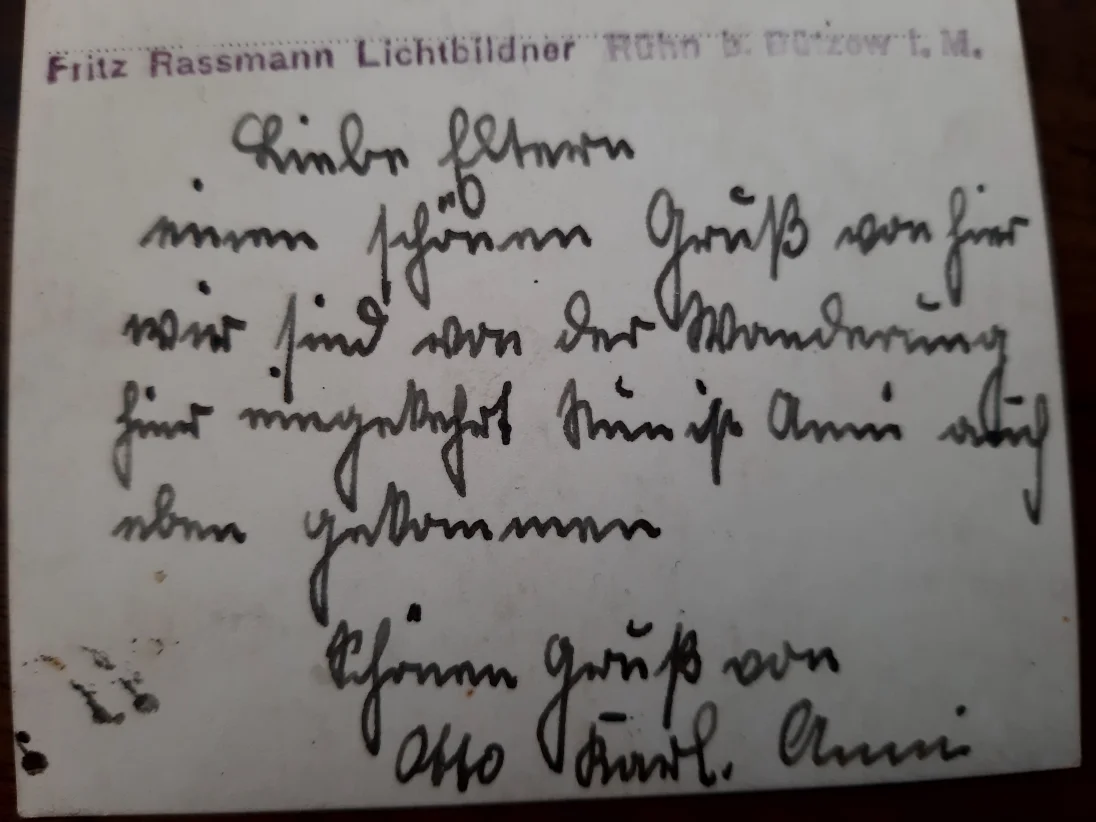 Fritz Rassmann Lichtbildner Rühn b. Bützow i. M.
Liebe Eltern
einen schönen Gruß von hier
wir sind von der Wanderung
hier eingekehrt Nun ist Anni auch
eben gekommen
Schönen Gruß von
Otto Karl. Anni